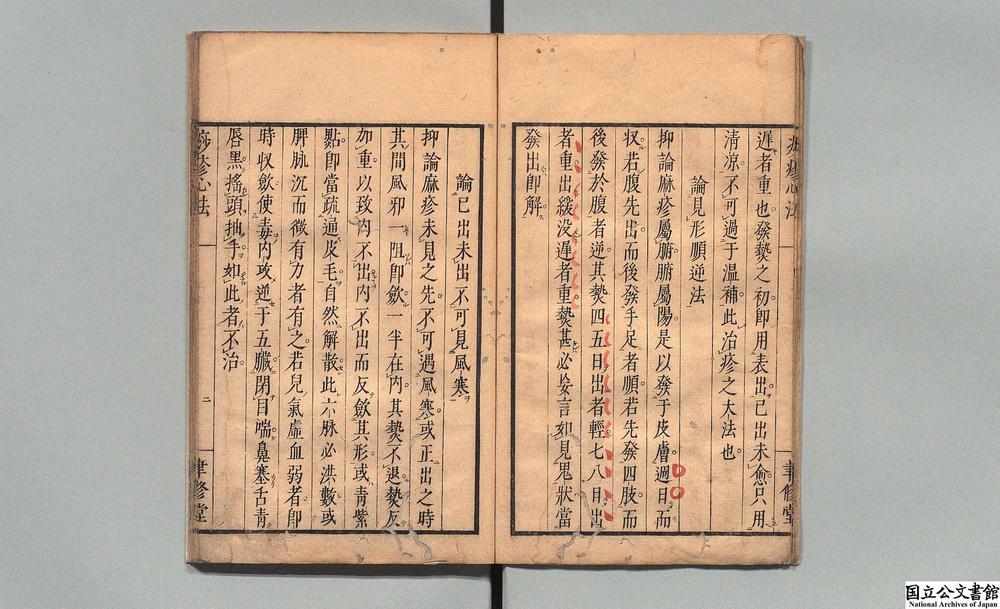 遲者重也發𤍠之初卽用表出已出未愈只用
清凉不可過于溫補此治疹之大法也
論見形順逆法
抑論麻疹屬腑腑屬陽是以發于皮膚週日而
収若腹先出而後發手足者順若先發四肢而
後發於腹者逆其𤍠四五日出者輕七八日出
者重出緩没遲者重𤍠甚必妄言如見鬼狀當
發出卽解
論已出未出不可見風寒
抑論麻疹未見之先不可遇風寒或正出之時
其間風邪一阻卽歛一半在内其𤍠不退𤍠反
加重以致肉不出内不出而反歛其形或青紫
點卽當疏通皮毛自然解散此六脉必洪數或
脾脉沉而微有力者有之若兒氣虛血弱者卽
時収歛使毒内攻逆于五臓閉目喘鼻塞舌青
唇黑搖頭抽手如此者不治
疹心法
二
聿修堂
聿修堂
国立公文書館
National Archives of Japan